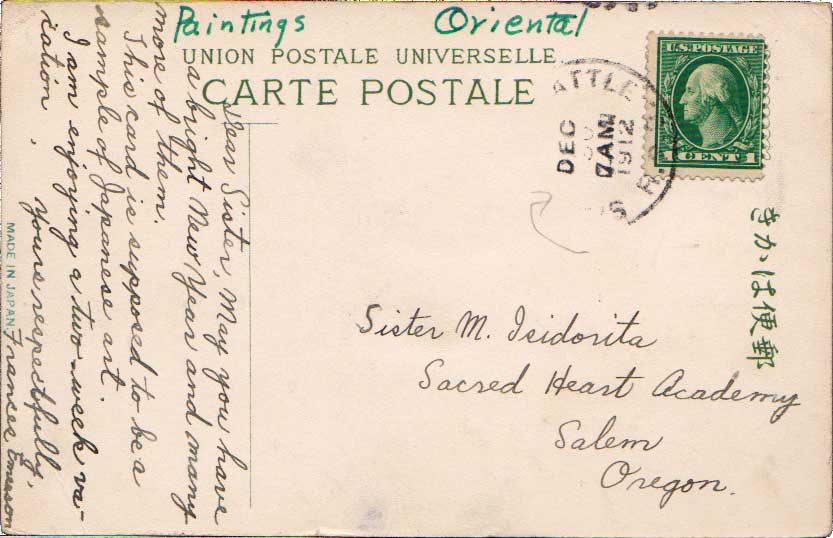 Paintings Oriental
UNION POSTALE UNIVERSELLE
CARTE POSTALE
ATTLE
DEC
30
7 AM
1912
U.S. POSTAGE
1 CENT 1
きかは便郵
Dear Sister, May you have
a bright New Year and many
more of them.
This card is supposed to be a
sample of Japanese art.
I am enjoying a two-week va-
cation.
Yours respectfully,
Franses Emerson
MADE IN JAPAN.
Sister M. Isidorita
Sacred Heart Academy
Salem
Oregon.